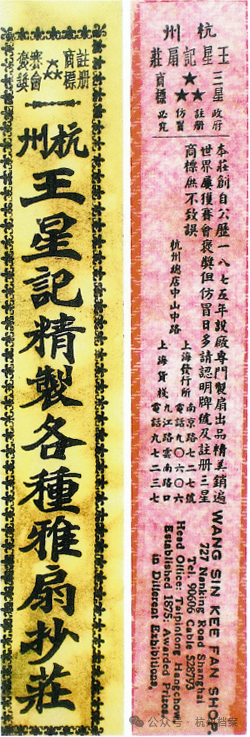 註册
商標
賽會
褒獎
杭州
王星記精製各種雅扇抄莊
杭州
王星記扇莊
三星
商標
政府
註册
仿冒
必究
本莊創自公歷一八七五年設廠專門製扇出品精美銷遍
世界屢獲賽會褒獎但仿冒日多請認明牌號及註册三星
商標庶不致誤
杭州總店中山中路
上海發行所 南京路七二七號
電話九〇六〇六
上海貨棧 九江路雲南路口
電話九七二三七
WANG SIN KEE FAN SHOP
727 Nanking Road Shanghai
Tel. 90606 Cable 528773
Head Office: Taipinfong Hangchow
Established 1875: Awarded Prizes
in Different Exhibitions.
公众号·杭州档案